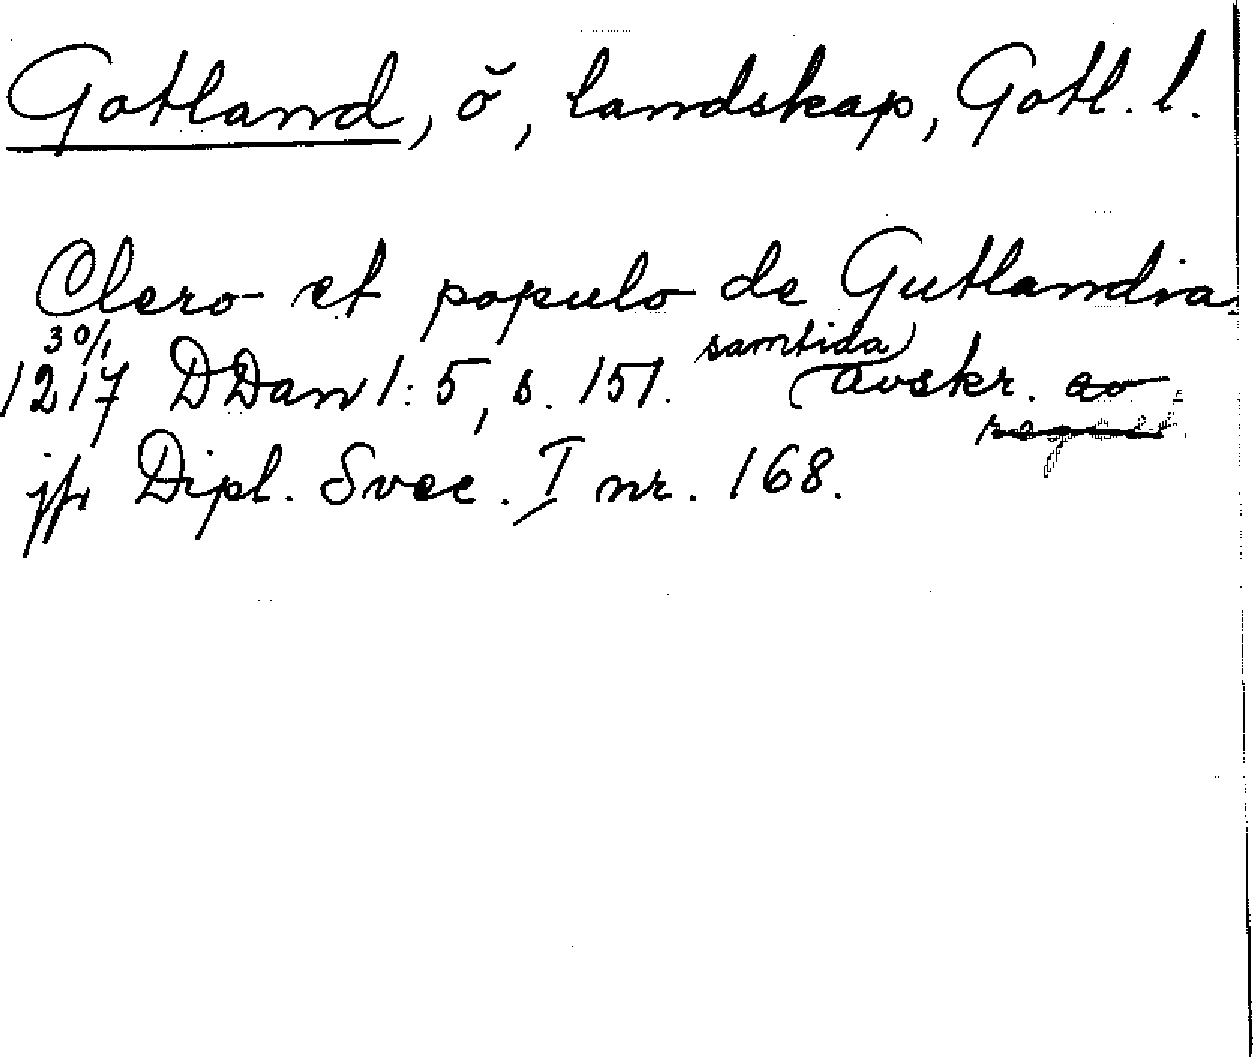 Gotland, ö, landskap, Gotl. l.
Clero et populo de Gutlandia
30/1
1217 DDan 1:5, s. 151. (samtida) avskr. av
jfr Dipl. Svec. I nr. 168.